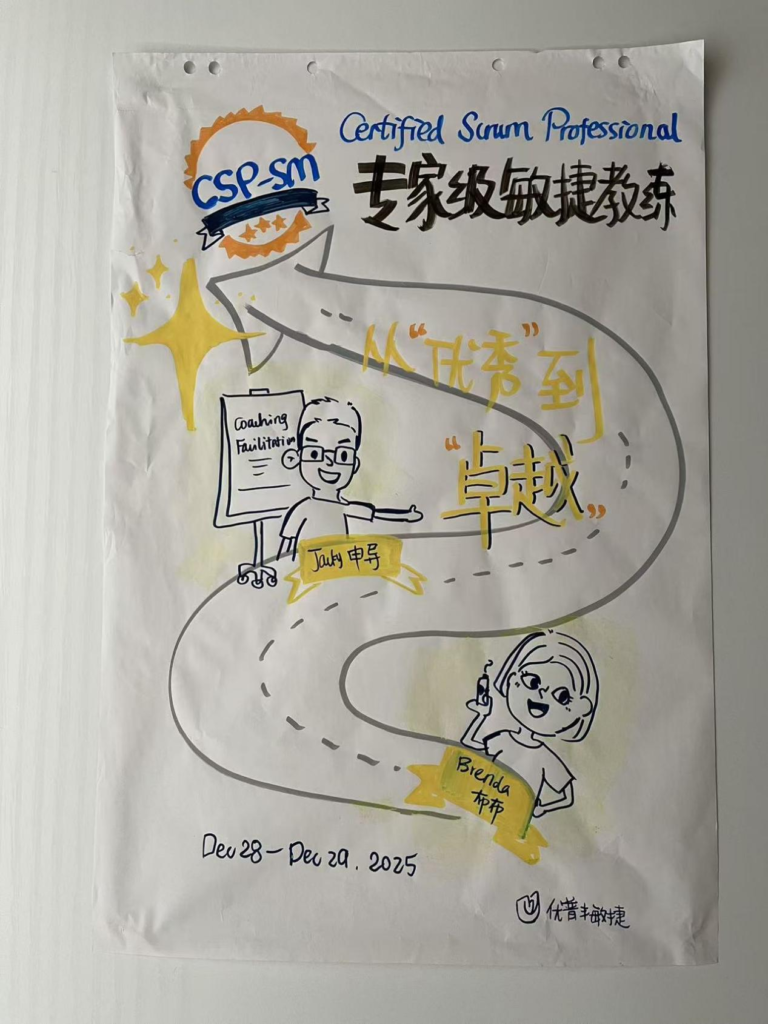 CSP-SM
Certified Scrum Professional
专家级敏捷教练
从“优秀”到
“卓越”
Coaching
Facilitation
Jacky 申导
Brenda
布布
Dec 28 - Dec 29, 2025
优普丰敏捷